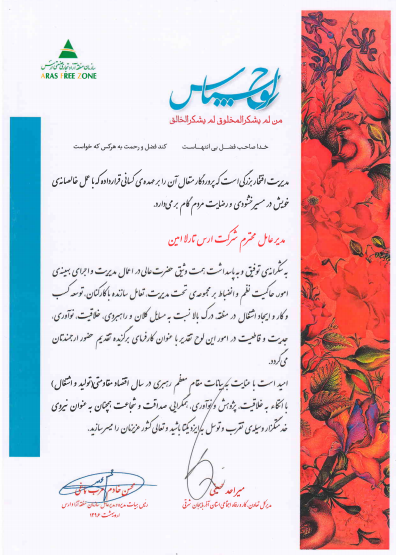 سازمان منطقه آزاد تجاری صنعتی ارس
ARAS FREE ZONE
لوح سپاس
من لم یشکرالمخلوق لم یشکرالخالق
خدا صاحب فضل بی انتهاست کند فضل و رحمت به هرکس که خواست
مدیریت افتخار بزرگی است که پروردگار متعال آن را بر عهده‌ی کسانی قرار داده که با عمل خالصانه‌ی
خویش در مسیر خشنودی و رضایت مردم گام بر می‌دارد.
مدیر عامل محترم شرکت ارس تارلا امین
به شکرانه‌ی توفیق و به پاسداشت همت وثیق حضرت عالی در اعمال مدیریت و اجرای بهینه‌ی
امور، حاکمیت نظم و انضباط بر مجموعه‌ی تحت مدیریت، تعامل سازنده با کارکنان، توسعه کسب
و کار و ایجاد اشتغال در منطقه، درک بالا نسبت به مسایل کلان و راهبردی، خلاقیت، نوآوری،
جدیت و قاطعیت در امور این لوح تقدیر با عنوان کارفرمای برگزیده تقدیم حضور ارجمندتان
می‌گردد.
امید است با عنایت به بیانات مقام معظم رهبری در سال اقتصاد مقاومتی(تولید و اشتغال)
با اتکاء به خلاقیت، پژوهش و نوآوری، همگرایی، صداقت و شجاعت همچنان به عنوان نیروی
خدمتگزار وسیله‌ی تقرب و توسل به ایزد یکتا باشید و تعالی کشور عزیزمان را میسر سازید.
میراحد
مدیرکل تعاون، کار و رفاه اجتماعی استان آذربایجان شرقی
محسن خادم عرب باغی
رئیس هیات مدیره و مدیرعامل سازمان منطقه آزاد ارس
اردیبهشت ۱۳۹۶